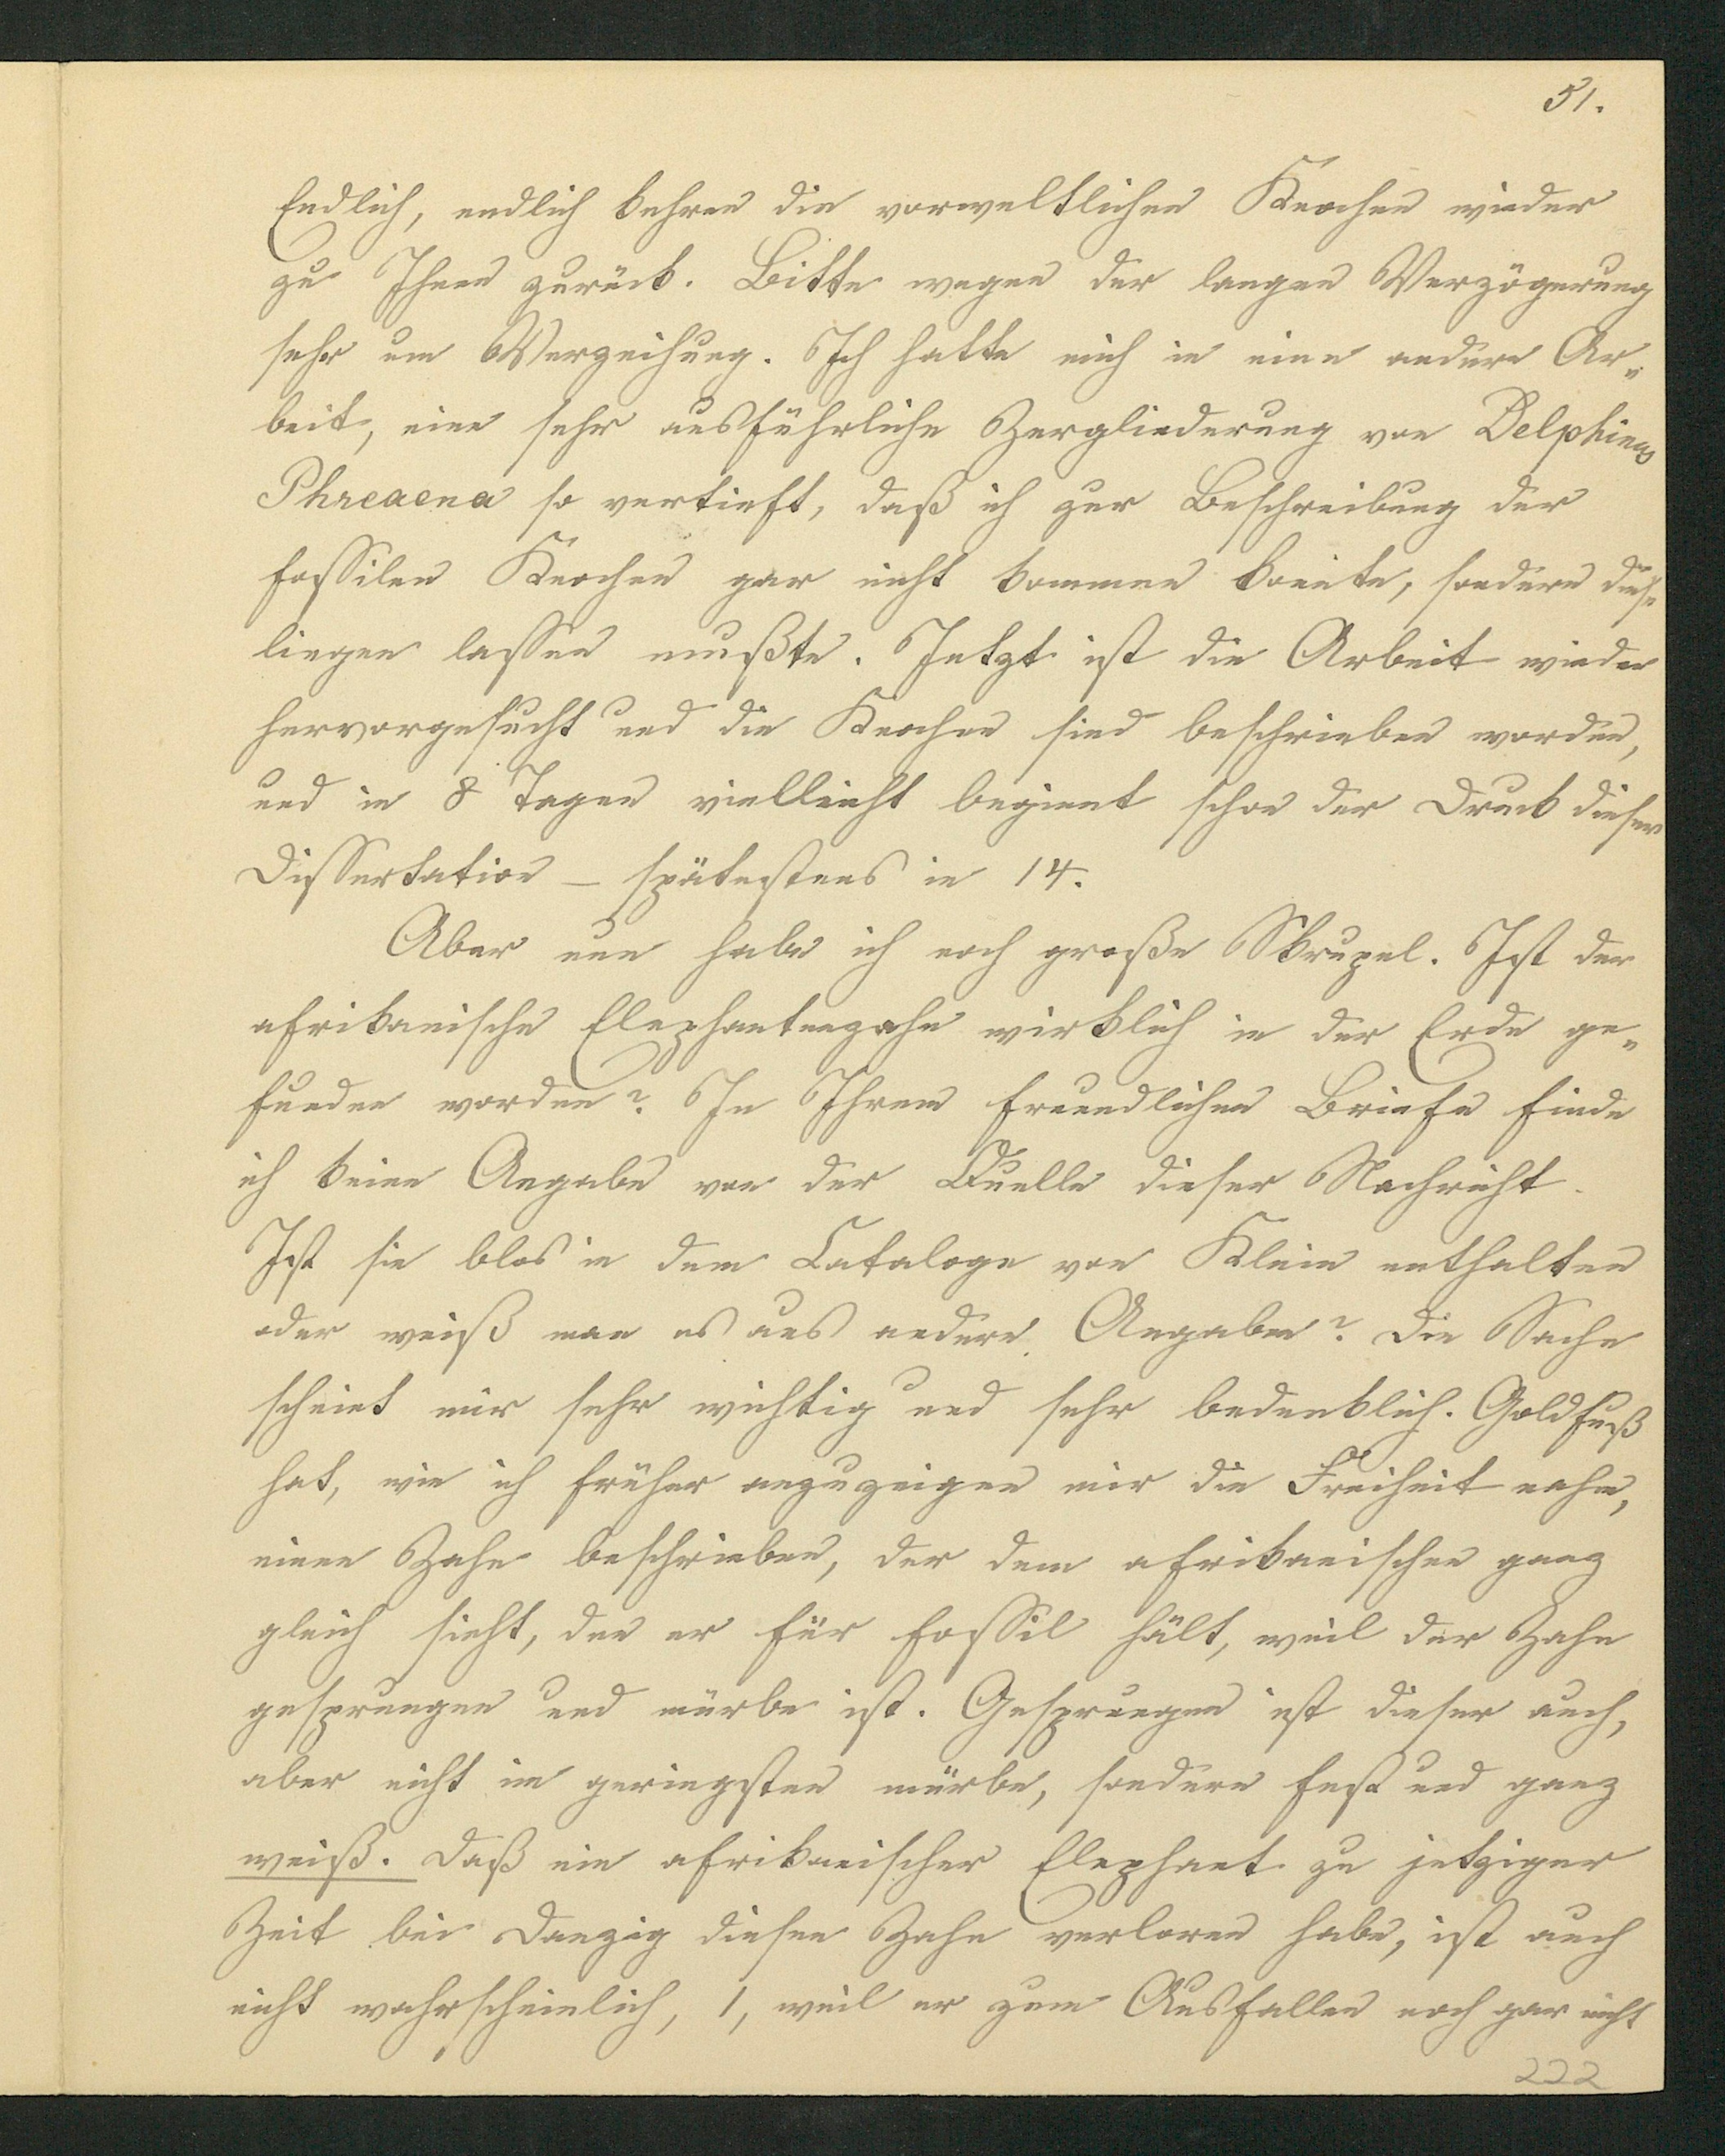 51.
Endlich, endlich kehren die vorweltlichen Knochen wieder
zu Ihnen zurück. Bitte wegen der langen Verzögerung
sehr um Verzeihung. Ich hatte mich in eine andere Ar-
beit, eine sehr ausführliche Zergliederung von Delphinus
Phreaena so vertieft, daß ich zur Beschreibung der
fossilen Knochen gar nicht kommen konnte, sondern diese
liegen lassen mußte. Jetzt ist die Arbeit wieder
hervorgesucht und die Knochen sind beschrieben worden,
und in 8 Tagen vielleicht beginnt schon der Druck dieser
Dissertation – spätestens in 14.
Aber nun habe ich noch große Skrupel. Ist der
afrikanische Elephantenzahn wirklich in der Erde ge-
funden worden? In Ihrem freundlichen Briefe finde
ich keine Angabe von der Quelle dieser Nachricht.
Ist sie blos in dem Cataloge von Klein enthalten
oder weiß man es aus andern Angaben? Die Sache
scheint mir sehr wichtig und sehr bedenklich. Goldfuß
hat, wie ich früher anzuzeigen mir die Freiheit nahm,
einen Zahn beschrieben, der dem afrikanischen ganz
gleich sieht, den er für fossil hält, weil der Zahn
gesprungen und mürbe ist. Gesprungen ist dieser auch,
aber nicht im geringsten mürbe, sondern fest und ganz
weiß. Daß ein afrikanischer Elephant zu jetziger
Zeit bei Danzig diesen Zahn verloren habe, ist auch
nicht wahrscheinlich, 1, weil er zum Ausfallen noch gar nicht
222